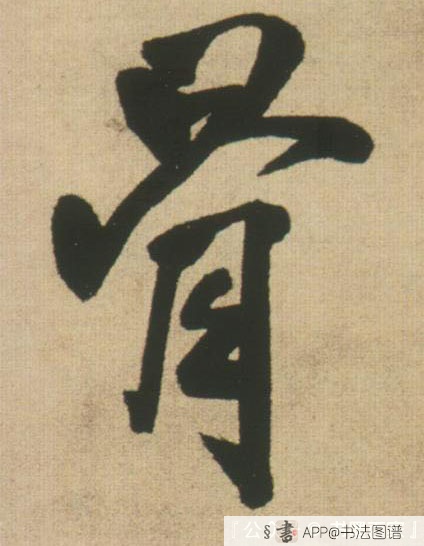 骨
§書 APP@书法图谱